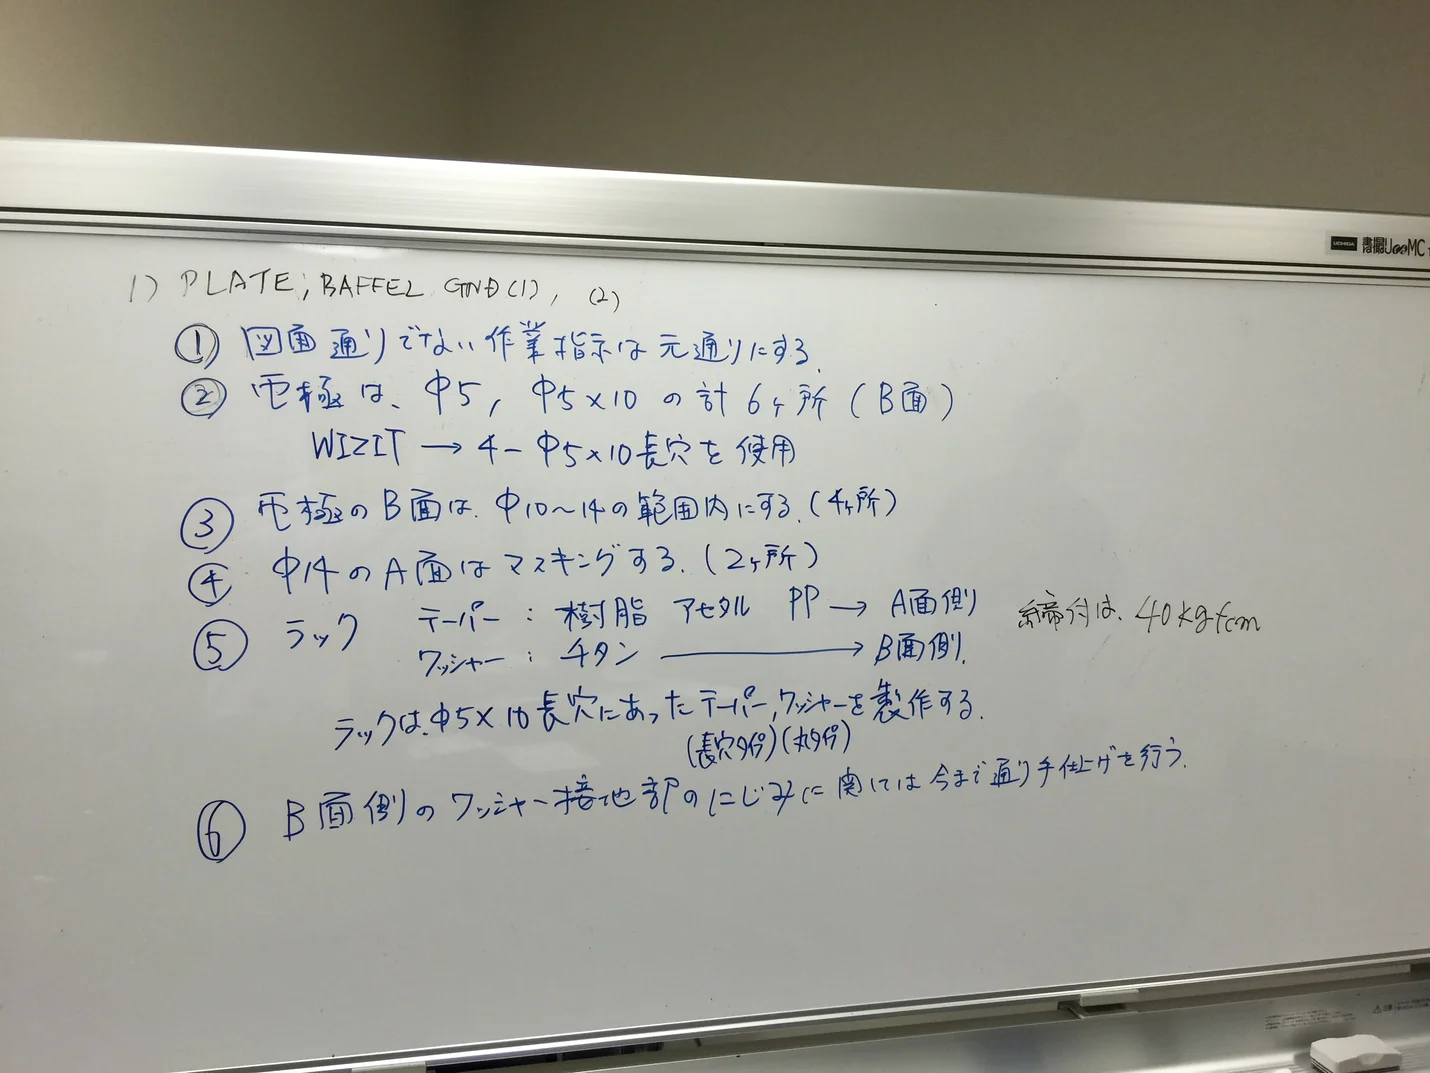 1) PLATE; BAFFEL GND(1), (2)
① 図面通りでない作業指示は元通りにする。
② 電極は、Φ5, Φ5×10 の計 6ヶ所 (B面)
WIZIT → 4-Φ5×10長穴を使用
③ 電極のB面は、Φ10~14の範囲内にする。(4ヶ所)
④ Φ14のA面はマスキングする。(2ヶ所)
⑤ ラック テーパー : 樹脂 アセタル PP → A面側 締付は、40kgfcm
ワッシャー : チタン → B面側。
ラックは、Φ5×10長穴にあったテーパー,ワッシャーを製作する。
(長穴タイプ)(丸タイプ)
⑥ B面側のワッシャー接地部のにじみに関しては今まで通り手仕上げを行う。
UCHIDA 書撮UccMC